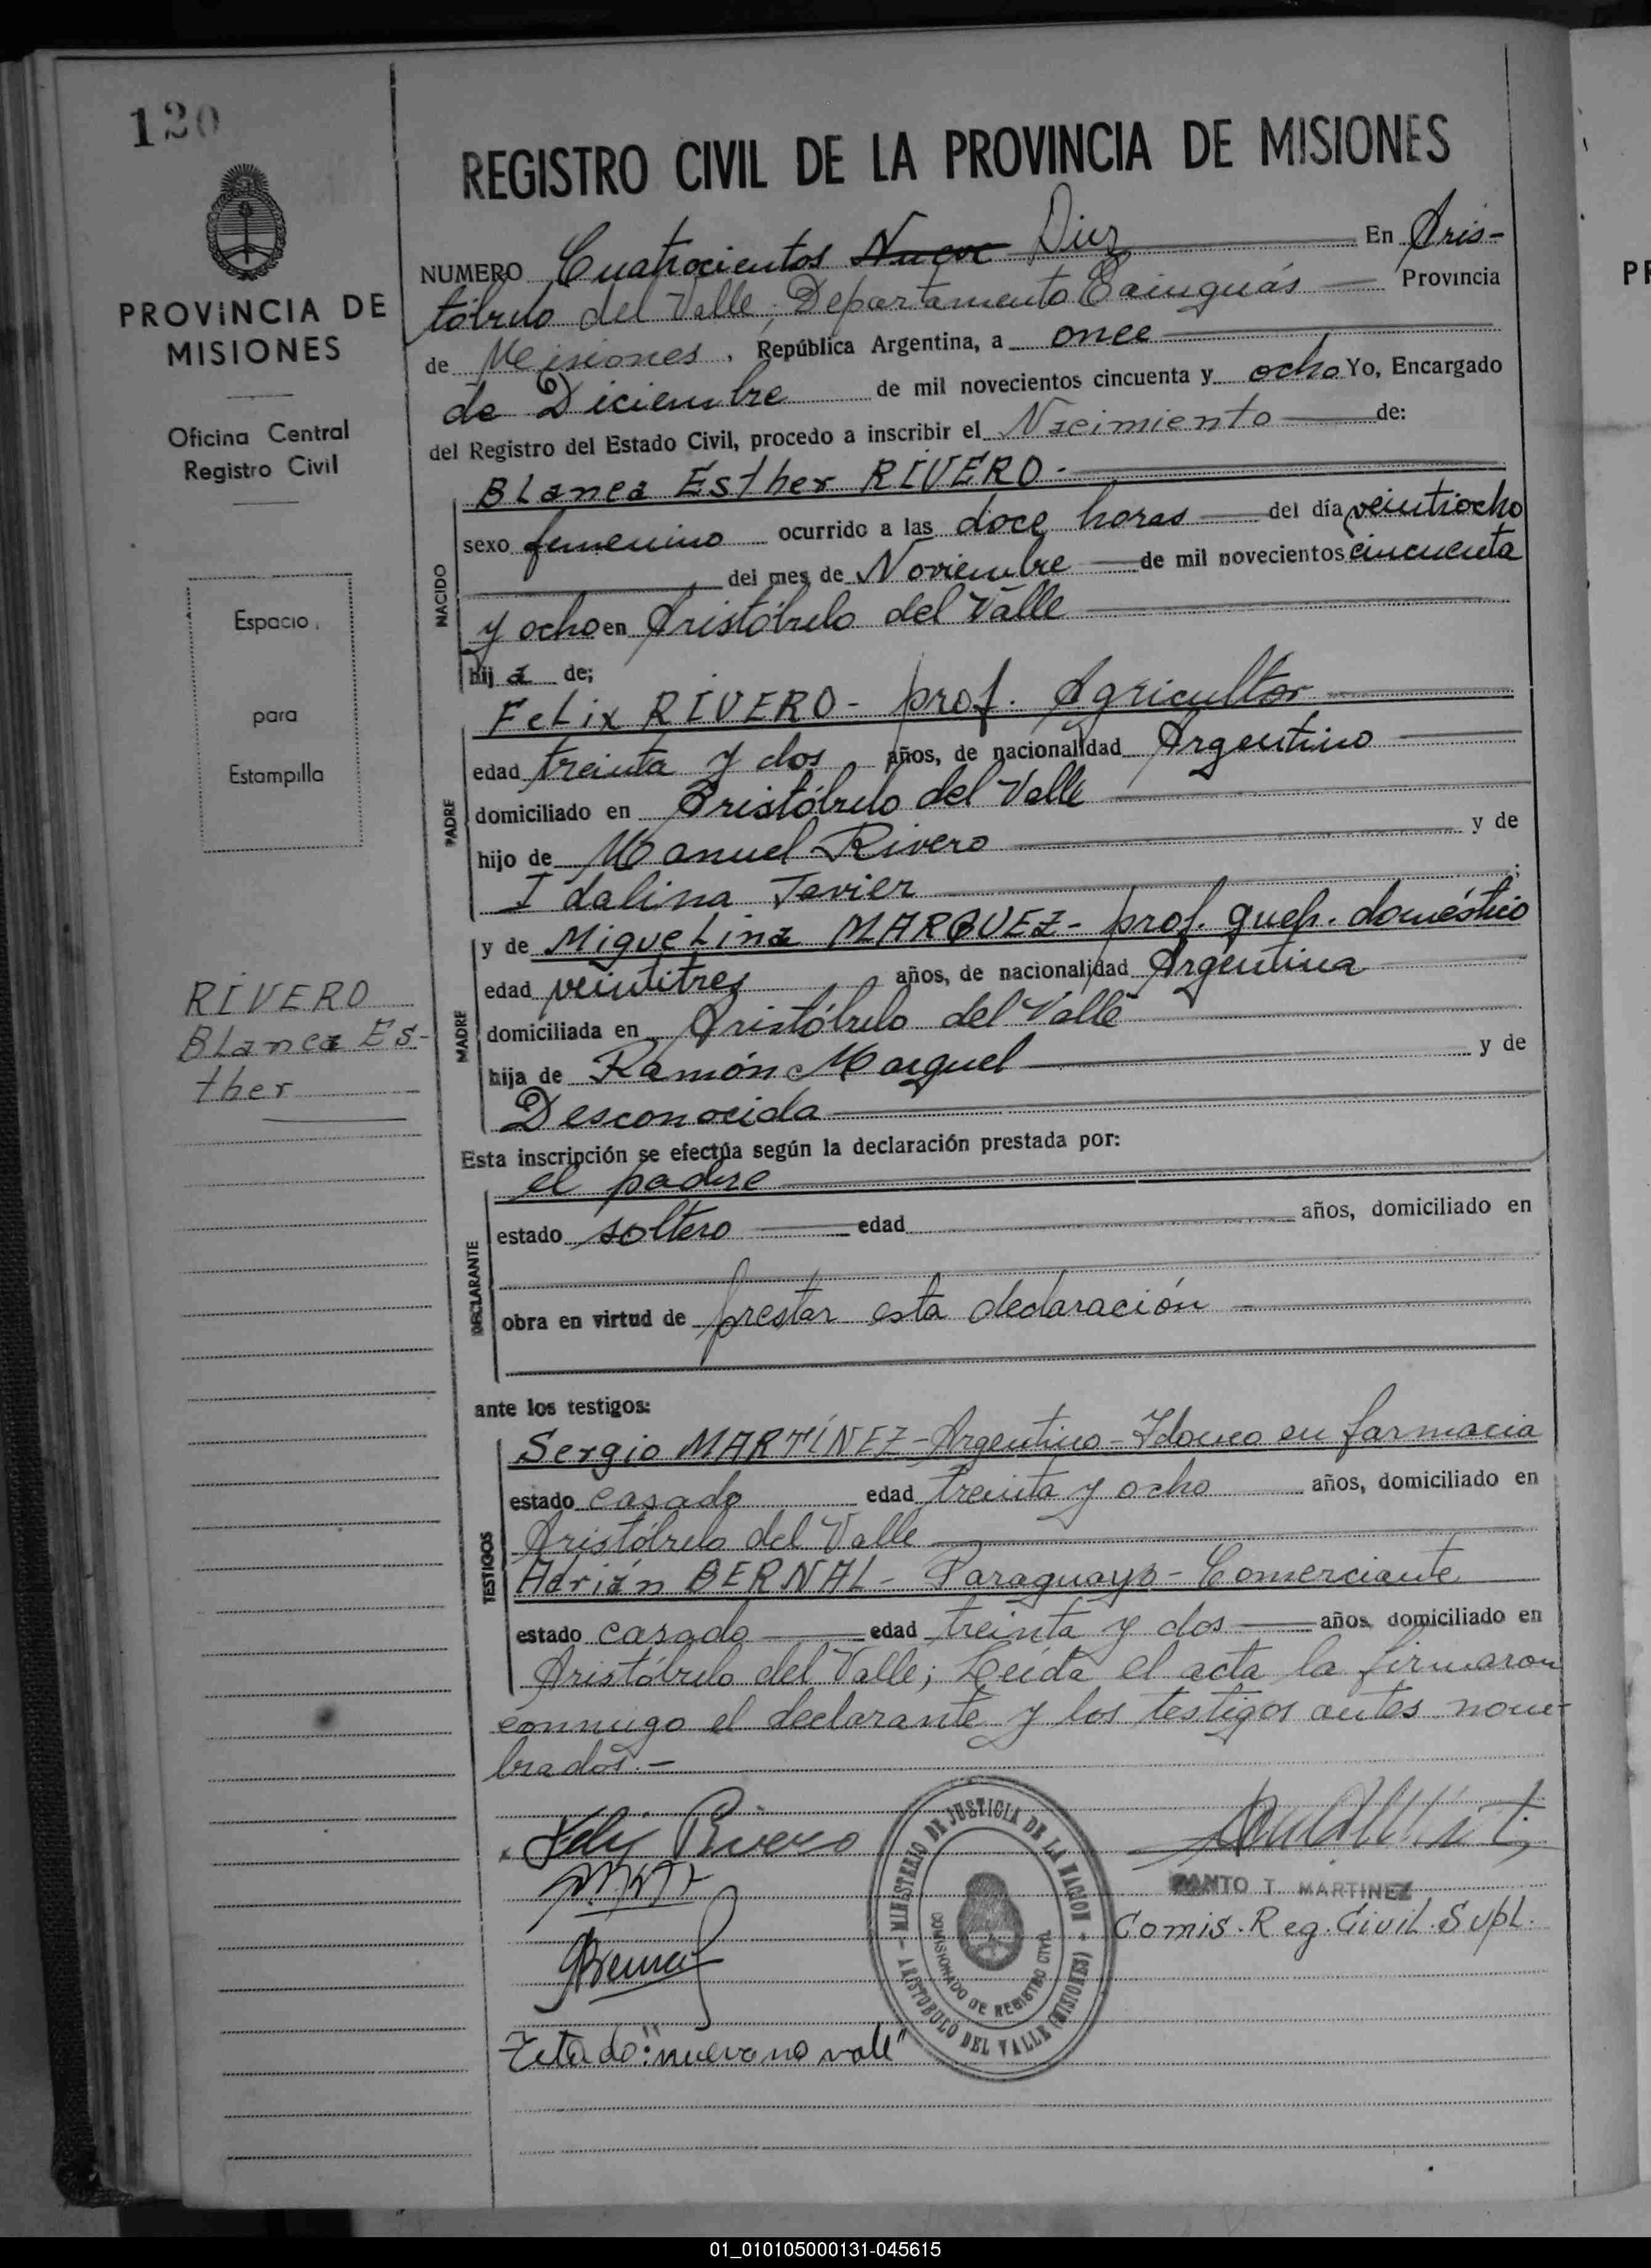 120
PROVINCIA DE
MISIONES
Oficina Central
Registro Civil
Espacio
para
Estampilla
RIVERO
Blanca Es-
ther
REGISTRO CIVIL DE LA PROVINCIA DE MISIONES
NUMERO Cuatrocientos Nueve Diez En Aris-
tóbulo del Valle, Departamento Cainguás Provincia
de Misiones, República Argentina, a once
de Diciembre de mil novecientos cincuenta y ocho Yo, Encargado
del Registro del Estado Civil, procedo a inscribir el Nacimiento de:
Blanca Esther RIVERO-
NACIDO
sexo femenino ocurrido a las doce horas del día veintiocho
del mes de Noviembre de mil novecientos cincuenta
y ocho en Aristóbulo del Valle
hij a de;
Felix RIVERO - prof. Agricultor
PADRE
edad treinta y dos años, de nacionalidad Argentino
domiciliado en Aristóbulo del Valle
hijo de Manuel Rivero y de
Idalina Javier ;
y de Miguelina MARQUEZ - prof. queh. doméstico
MADRE
edad veintitres años, de nacionalidad Argentina
domiciliada en Aristóbulo del Valle
hija de Ramón Marquel y de
Desconocida
Esta inscripción se efectúa según la declaración prestada por:
el padre
DECLARANTE
estado soltero edad años, domiciliado en
obra en virtud de prestar esta declaración
ante los testigos:
Sergio MARTÍNEZ - Argentino - Idoneo en farmacia
TESTIGOS
estado casado edad treinta y ocho años, domiciliado en
Aristóbulo del Valle
Adrián BERNAL - Paraguayo - Comerciante
estado casado edad treinta y dos años, domiciliado en
Aristóbulo del Valle; Leída el acta la firmaron
conmigo el declarante y los testigos antes nom-
brados.-
Felix Rivero
MINISTERIO DE JUSTICIA DE LA NACION
COMISIONADO DE REGISTRO CIVIL
ARISTOBULO DEL VALLE (MISIONES)
SANTO T. MARTINEZ
Comis. Reg. Civil Supl.
Testado: "nueve no vale"
01_010105000131-045615